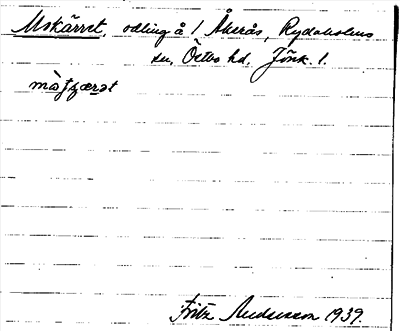 Mskärret, odling å 1 Åkerås, Rydaholms
sn, Östbo hd. Jönk. l.
Fritz Andersson 1939.